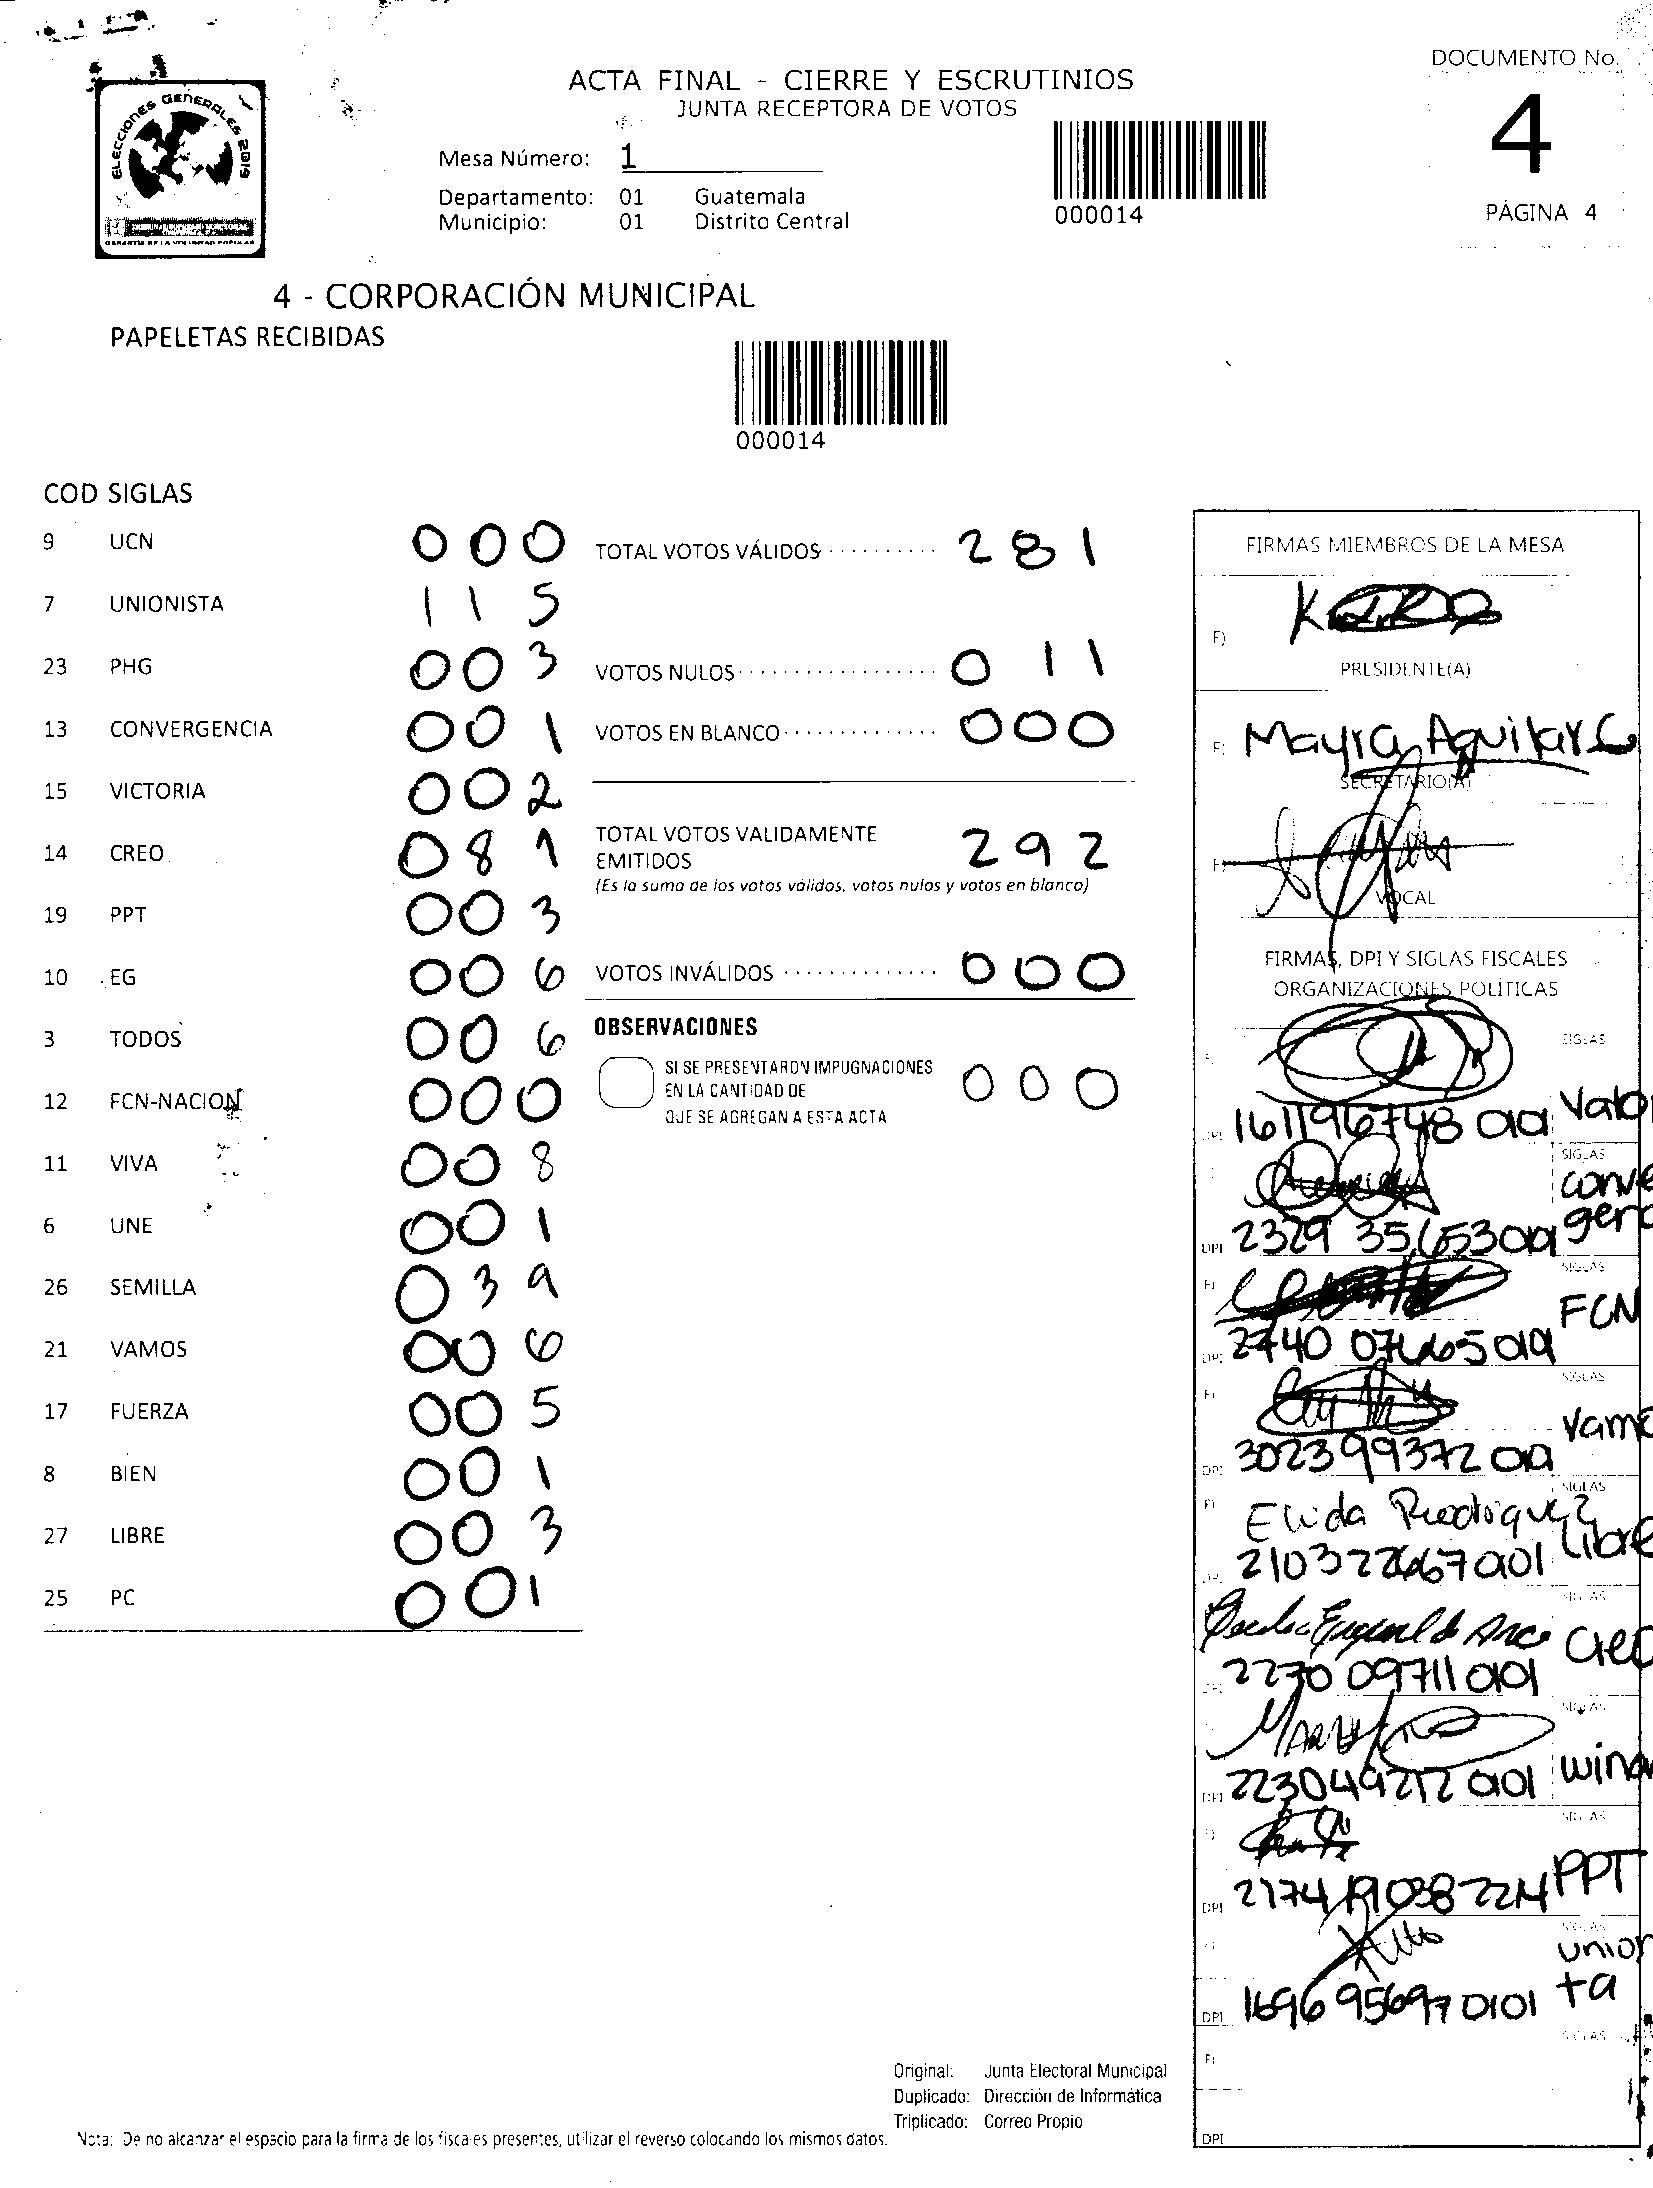 DOCUMENTO No.
ACTA FINAL - CIERRE Y ESCRUTINIOS
JUNTA RECEPTORA DE VOTOS
4
PÁGINA 4
ELECCIONES GENERALES 2019
Mesa Número: 1
Departamento: 01 Guatemala
Municipio: 01 Distrito Central
000014
4 - CORPORACIÓN MUNICIPAL
PAPELETAS RECIBIDAS
000014
COD SIGLAS
9 UCN 000
7 UNIONISTA 115
23 PHG 003
13 CONVERGENCIA 001
15 VICTORIA 002
14 CREO 081
19 PPT 003
10 EG 006
3 TODOS 006
12 FCN-NACION 000
11 VIVA 008
6 UNE 001
26 SEMILLA 039
21 VAMOS 006
17 FUERZA 005
8 BIEN 001
27 LIBRE 003
25 PC 001
TOTAL VOTOS VÁLIDOS 281
VOTOS NULOS 011
VOTOS EN BLANCO 000
TOTAL VOTOS VALIDAMENTE
EMITIDOS 292
(Es la suma de los votos válidos, votos nulos y votos en blanco)
VOTOS INVÁLIDOS 000
OBSERVACIONES
SI SE PRESENTARON IMPUGNACIONES
EN LA CANTIDAD DE 000
QUE SE AGREGAN A ESTA ACTA
FIRMAS MIEMBROS DE LA MESA
F)
PRESIDENTE(A)
F) Mayra Aguilar
SECRETARIO(A)
F)
VOCAL
FIRMAS, DPI Y SIGLAS FISCALES
ORGANIZACIONES POLITICAS
SIGLAS
Valo
SIGLAS
conve
gen
DPI
F) SIGLAS
FCN
DPI
F) SIGLAS
Vamo
DPI 302399372
F) SIGLAS
Elida Rodriguez
Libre
SIGLAS
Creo
DPI 2270 09711 0101
SIGLAS
DPI 223049212 0101 wina
SIGLAS
PPT
DPI
SIGLAS
union
ta
DPI 1696 95697 0101
SIGLAS
F)
DPI
Original: Junta Electoral Municipal
Duplicado: Dirección de Informática
Triplicado: Correo Propio
Nota: De no alcanzar el espacio para la firma de los fiscales presentes, utilizar el reverso colocando los mismos datos.